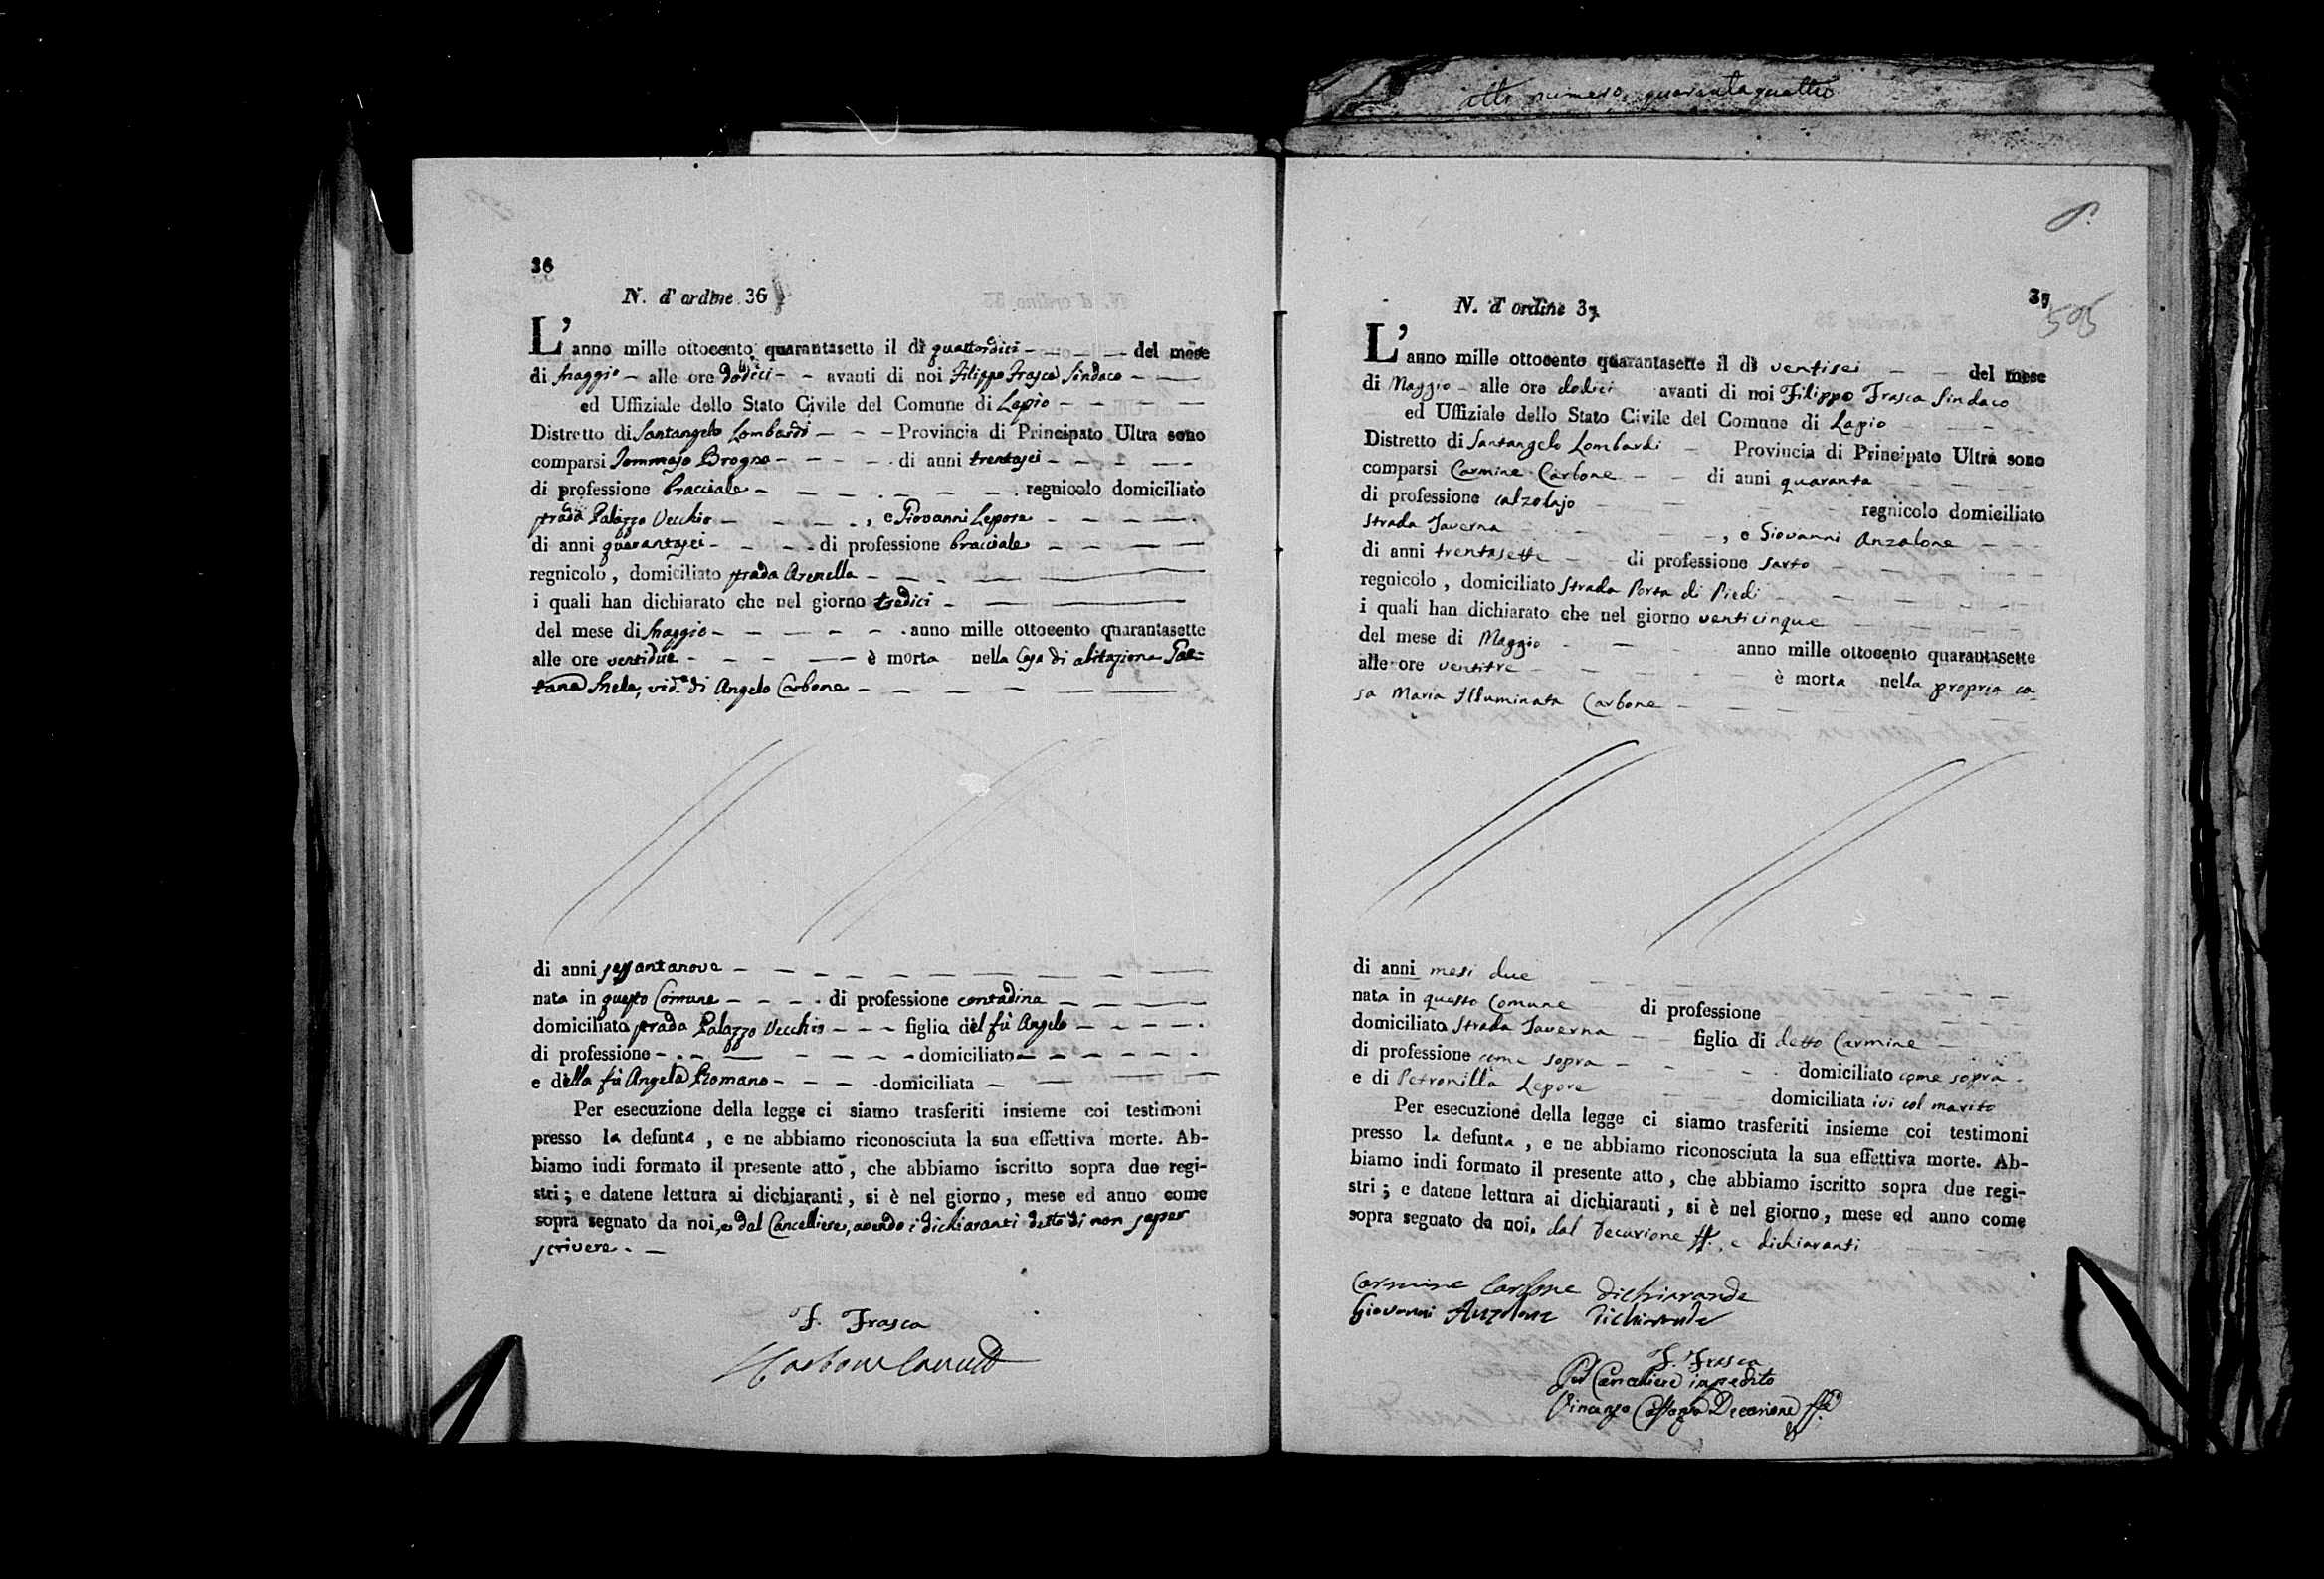 atto numero quarantaquattro
36
N. d' ordine 36
L'anno mille ottocento quarantasette il dì quattordici del mese
di Maggio alle ore dodici avanti di noi Filippo Frasca Sindaco
ed Uffiziale dello Stato Civile del Comune di Lapio
Distretto di Santangelo Lombardi Provincia di Principato Ultra sono
comparsi Tommaso Brogna di anni trentasei
di professione bracciale regnicolo domiciliato
strada Palazzo Vecchio , e Giovanni Lepore
di anni quarantasei di professione bracciale
regnicolo , domiciliato strada Arenella
i quali han dichiarato che nel giorno tredici
del mese di Maggio anno mille ottocento quarantasette
alle ore ventidue è morta nella Casa di abitazione Gae-
tana Mele, vid.ª di Angelo Carbone
di anni sessantanove
nata in questo Comune di professione contadina
domiciliata strada Palazzo Vecchio figlia del fù Angelo
di professione domiciliato
e della fù Angela Romano domiciliata
Per esecuzione della legge ci siamo trasferiti insieme coi testimoni
presso la defunta , e ne abbiamo riconosciuta la sua effettiva morte. Ab-
biamo indi formato il presente atto , che abbiamo iscritto sopra due regi-
stri ; e datene lettura ai dichiaranti , si è nel giorno , mese ed anno come
sopra segnato da noi, e dal Cancelliere, avendo i dichiaranti detto di non saper
scrivere.
F. Frasca
37
505
N. d' ordine 37
L'anno mille ottocento quarantasette il dì ventisei del mese
di Maggio alle ore dodici avanti di noi Filippo Frasca Sindaco
ed Uffiziale dello Stato Civile del Comune di Lapio
Distretto di Santangelo Lombardi Provincia di Principato Ultra sono
comparsi Carmine Carbone di anni quaranta
di professione calzolajo regnicolo domiciliato
Strada Taverna , e Giovanni Anzalone
di anni trentasette di professione sarto
regnicolo , domiciliato Strada Porta di Piedi
i quali han dichiarato che nel giorno venticinque
del mese di Maggio anno mille ottocento quarantasette
alle ore ventitre è morta nella propria ca-
sa Maria Illuminata Carbone
di anni mesi due
nata in questo Comune di professione
domiciliata Strada Taverna figlia di detto Carmine
di professione come sopra domiciliato come sopra
e di Petronilla Lepore domiciliata ivi col marito
Per esecuzione della legge ci siamo trasferiti insieme coi testimoni
presso la defunta , e ne abbiamo riconosciuta la sua effettiva morte. Ab-
biamo indi formato il presente atto , che abbiamo iscritto sopra due regi-
stri ; e datene lettura ai dichiaranti , si è nel giorno , mese ed anno come
sopra segnato da noi, dal Decurione ff. e dichiaranti
Carmine Carbone dichiarande
Giovanni Anzalone dichiarande
F. Frasca
Pel Cancelliere impedito
Vincenzo Decurione ff.